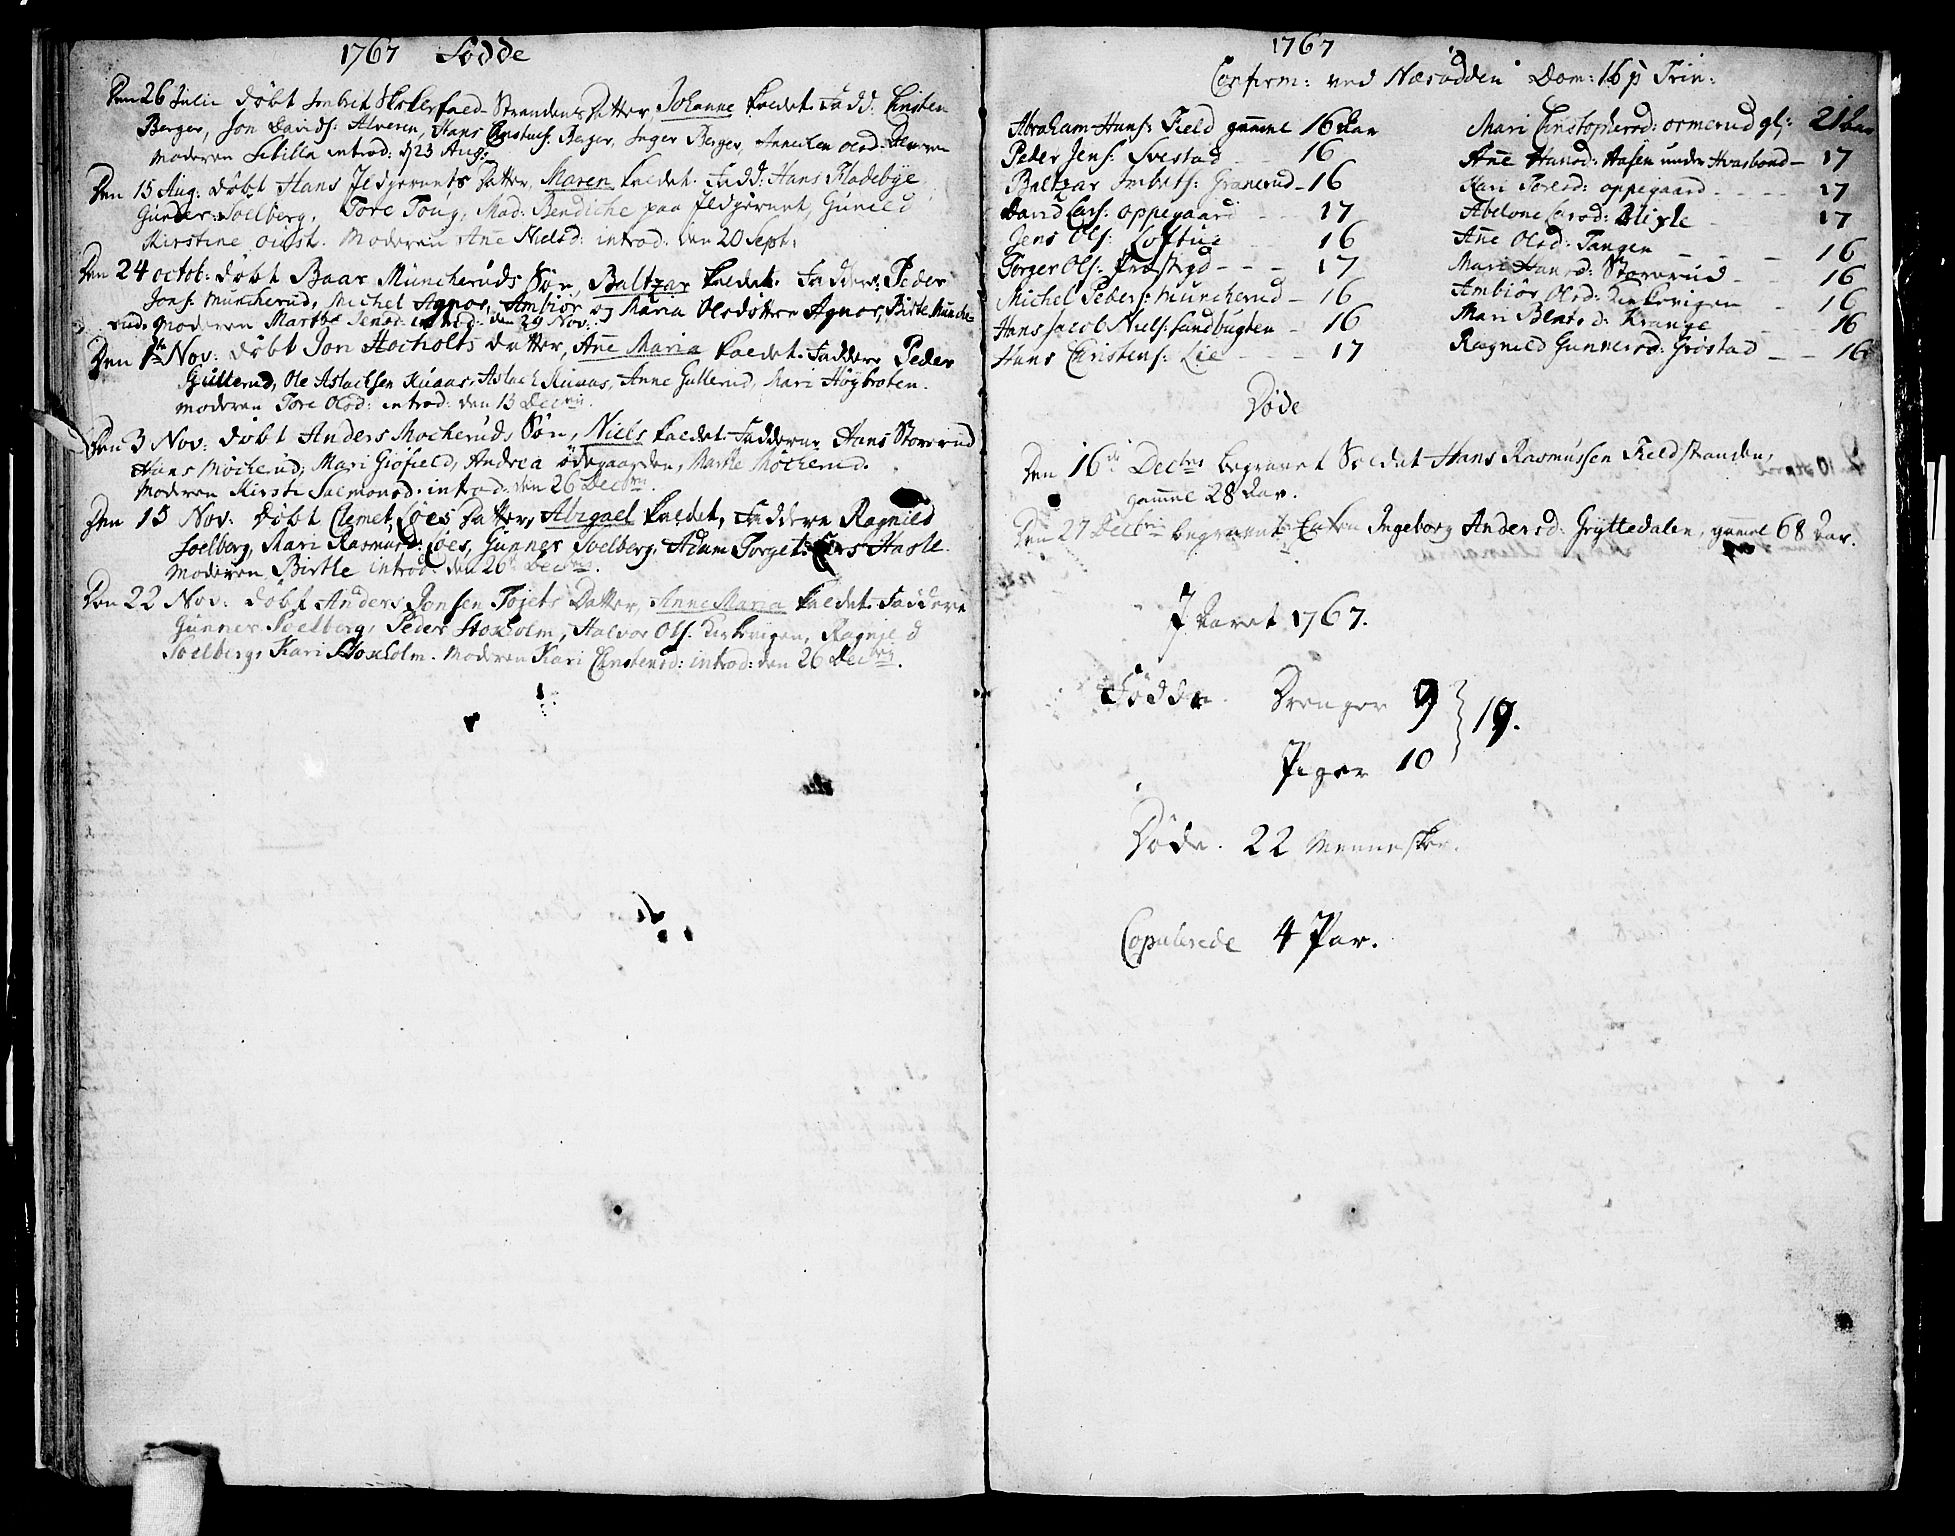 1767 Födde
Den 26 Julii döbt Imbrit Skokerfald-Strandens Datter, Johanne kaldet. Fadd: Christen
Berger, Jon Davids: Alveren, Hans Christens: Berger, Inger Berger, Anne Olsd:
Moderen Sibilla introd: d 23 Aug:
Den 15 Aug: döbt Hans Ildjernets Datter, Maren kaldet. Fadd: Hans Fladebÿe,
Gunder Soelberg, Tore Toug, Mad: Bendiche paa Ildjernet, Gunild
Kirstine Moderen Ane Nielsd: introd: den 20 Sept:
Den 24 octob: döbt Baar Müncherüds Sön, Baltzar kaldet. Faddere: Peder
Jons: Müncherud, Michel Agnor, Ambiör og Maria Olsdöttre Agnor, Birte Münche-
rud. Moderen Marthe Jensd: introd: den 29 Nov:
Den 1te Nov: döbt Jon Hocholts datter, Ane Maria kaldet. Faddere Peder
Güllerud, Ole Aslachsen Kuaas, Aslach Kuaas, Anne Gullerud, Mari Höybroten.
Moderen Tore Olsd: introd: den 13 Decbris.
Den 3 Nov: döbt Anders Mocherüds Sön, Niels kaldet. Fadderne Hans Storerud
Hans Möcherud, Mari Giöfield, Andrea Ödegaarden, Marthe Möcherud.
Moderen Kirsti Salmonsd: introd: den 26 Decbris.
Den 15 Nov: döbt Clemet Loes Datter, Abigael kaldet, Faddere Ragnild
Soelberg, Mari Rasmusd: Loes, Gunner Soelberg, Adam Torget, Lars Hasle.
Moderen Birthe introd: den 26 Decbris.
Den 22 Nov: döbt Anders Jonsen Tojets Datter, Anne Maria kaldet. Faddere
Gunner Soelberg, Peder Stoxholm, Halvor Ols: Kirkevigen, Ragnild
Soelberg, Kari Stoxholm. Moderen Kari Christensd: introd: den 26 Decbris.
1767
Confirm: ved Næsodden Dom: 16 p Trin:
Abraham Hans: Field gammel 16 Aar
Peder Jens: Svestad - - 16
Baltzar Imbrets: Granerud - 16
David Lars: Oppegaard - - 17
Jens Ols: Loftue 16
Torger Ols: Præstrud - - - 17
Michel Peders: Müncherud - 16
Hans Jacob Niels: Sandbugten - 16
Hans Christens: Lie - - - 17
Mari Christophersd: Ormerud gl: 21 Aar
Ane Hansd: Hasen under Hvasbond - 17
Kari Toresd: Oppegaard - - - - 17
Abelone Larsd: Blixle - 17
Ane Olsd: Tangen - - - 16
Mari Hansd: Storerud - - 16
Ambiör Olsd: Kirkevigen - - 16
Mari Bentsd: Krange - 16
Ragnild Gunnersd: Gröstad - - 16
Döde
Den 16de Decbris begravet Soldat Hans Rasmüssen Fieldstranden,
gammel 28 Aar.
Den 27 Decbris begravet Enken Ingeborg Andersd: Gryttedalen, gammel 68 Aar.
I Aaret 1767.
Födde. Drenger 9 } 19.
Piger 10
Döde. 22 Mennesker.
Copulerede 4 Par.